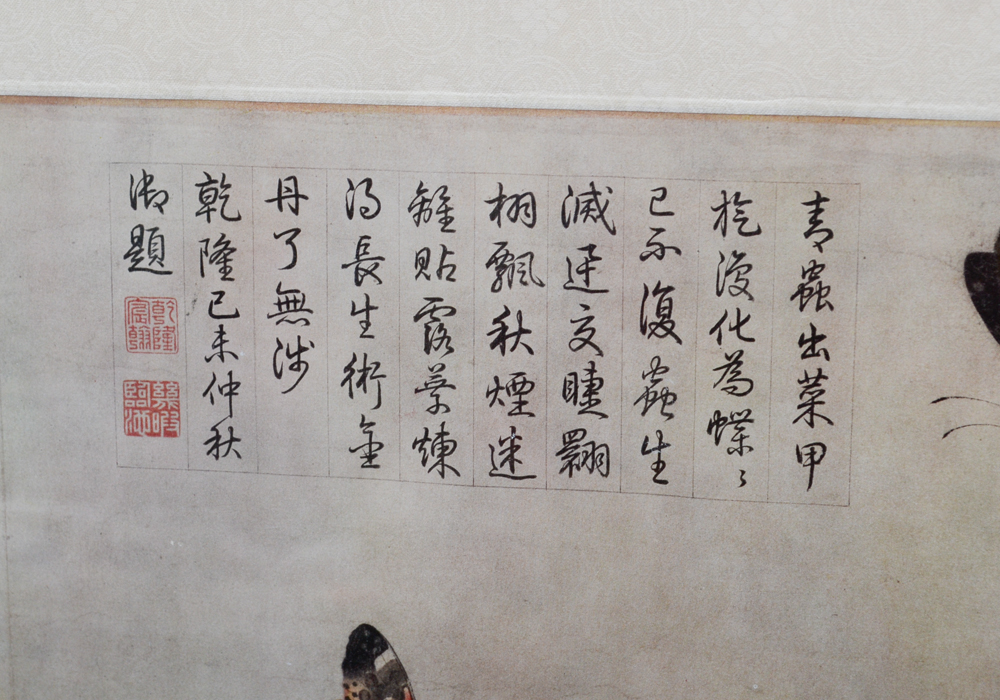 青蟲出菜甲
旋復化為蝶〻
已而復蟲生
滅交睫翾
栩飄秋煙迷
離貼露葉煉
得長生術金
丹了無涉
乾隆己未仲秋
御題
乾隆宸翰
幾暇臨池